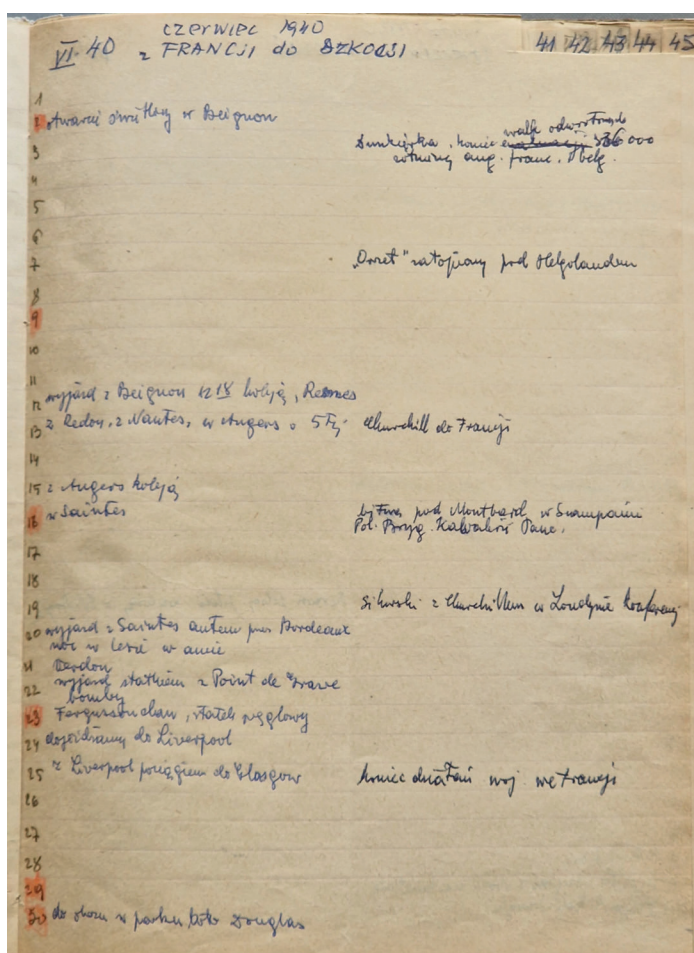 czerwiec 1940
VI-40 z FRANCJI do SZKOCJI 41 42 43 44 45
1
2 otwarcie świetlicy w Beignon
walk odwrót franc
3 Dunkierka, koniec 336000
żołnierzy ang. franc. i belg.
4
5
6
7 "Orzeł" zatopiony pod Helgolandem
8
9
10
11
12 wyjazd z Beignon 12 18 koleją, Rennes
13 z Redon, z Nantes, w Angers o 5 Tej Churchill do Francji
14
15 z Angers koleją
16 w Saintes bitwa pod Montbard w Szampanii
Pol. Bryg. Kawalerii Panc.
17
18
19 Sikorski z Churchillem w Londynie Konferencj
20 wyjazd z Saintes autem przez Bordeaux
noc w lesie w aucie
21 Verdon
22 wyjazd statkiem z Point de Grave
bomby
23 statek węglowy
24 dojeżdżamy do Liverpool
25 z Liverpool pociągiem do Glasgow koniec działań woj. we Francji
26
27
28
29
30 do obozu w parku koło Douglas